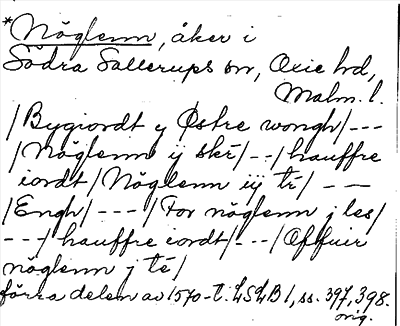 *Nöglenn, åker i
Södra Sallerups sn, Oxie hd,
Malm. l.
/Bygiordt y Østre wongh/---
/Nöglenn ij ske/--/hauffre
iordt/Nöglenn iij te/---
/Engh/---/For nöglenn j les/
---/hauffre iordt/---/Offuir
nöglenn j te/
förra delen av 1570-t. LSLB 1, ss. 397, 398.
orig.